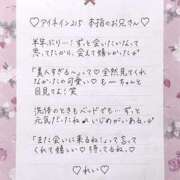 ♡アイネイン215 本指のお兄さん♡
半年ぶり…!ずっと会いたいなって
思ってたから、会えて嬉しかったよ
「美人すぎる〜」って♡全然見てくれ
なかったの可愛い♡もーちゃんと
目見てよ!笑
洗体のときもベッドでも…ずっと
元気だったね♡いじめがいあるっ♡
「また会いに来るね!」って言って
くれて嬉しい♡待ってるね、♡
♡れい♡